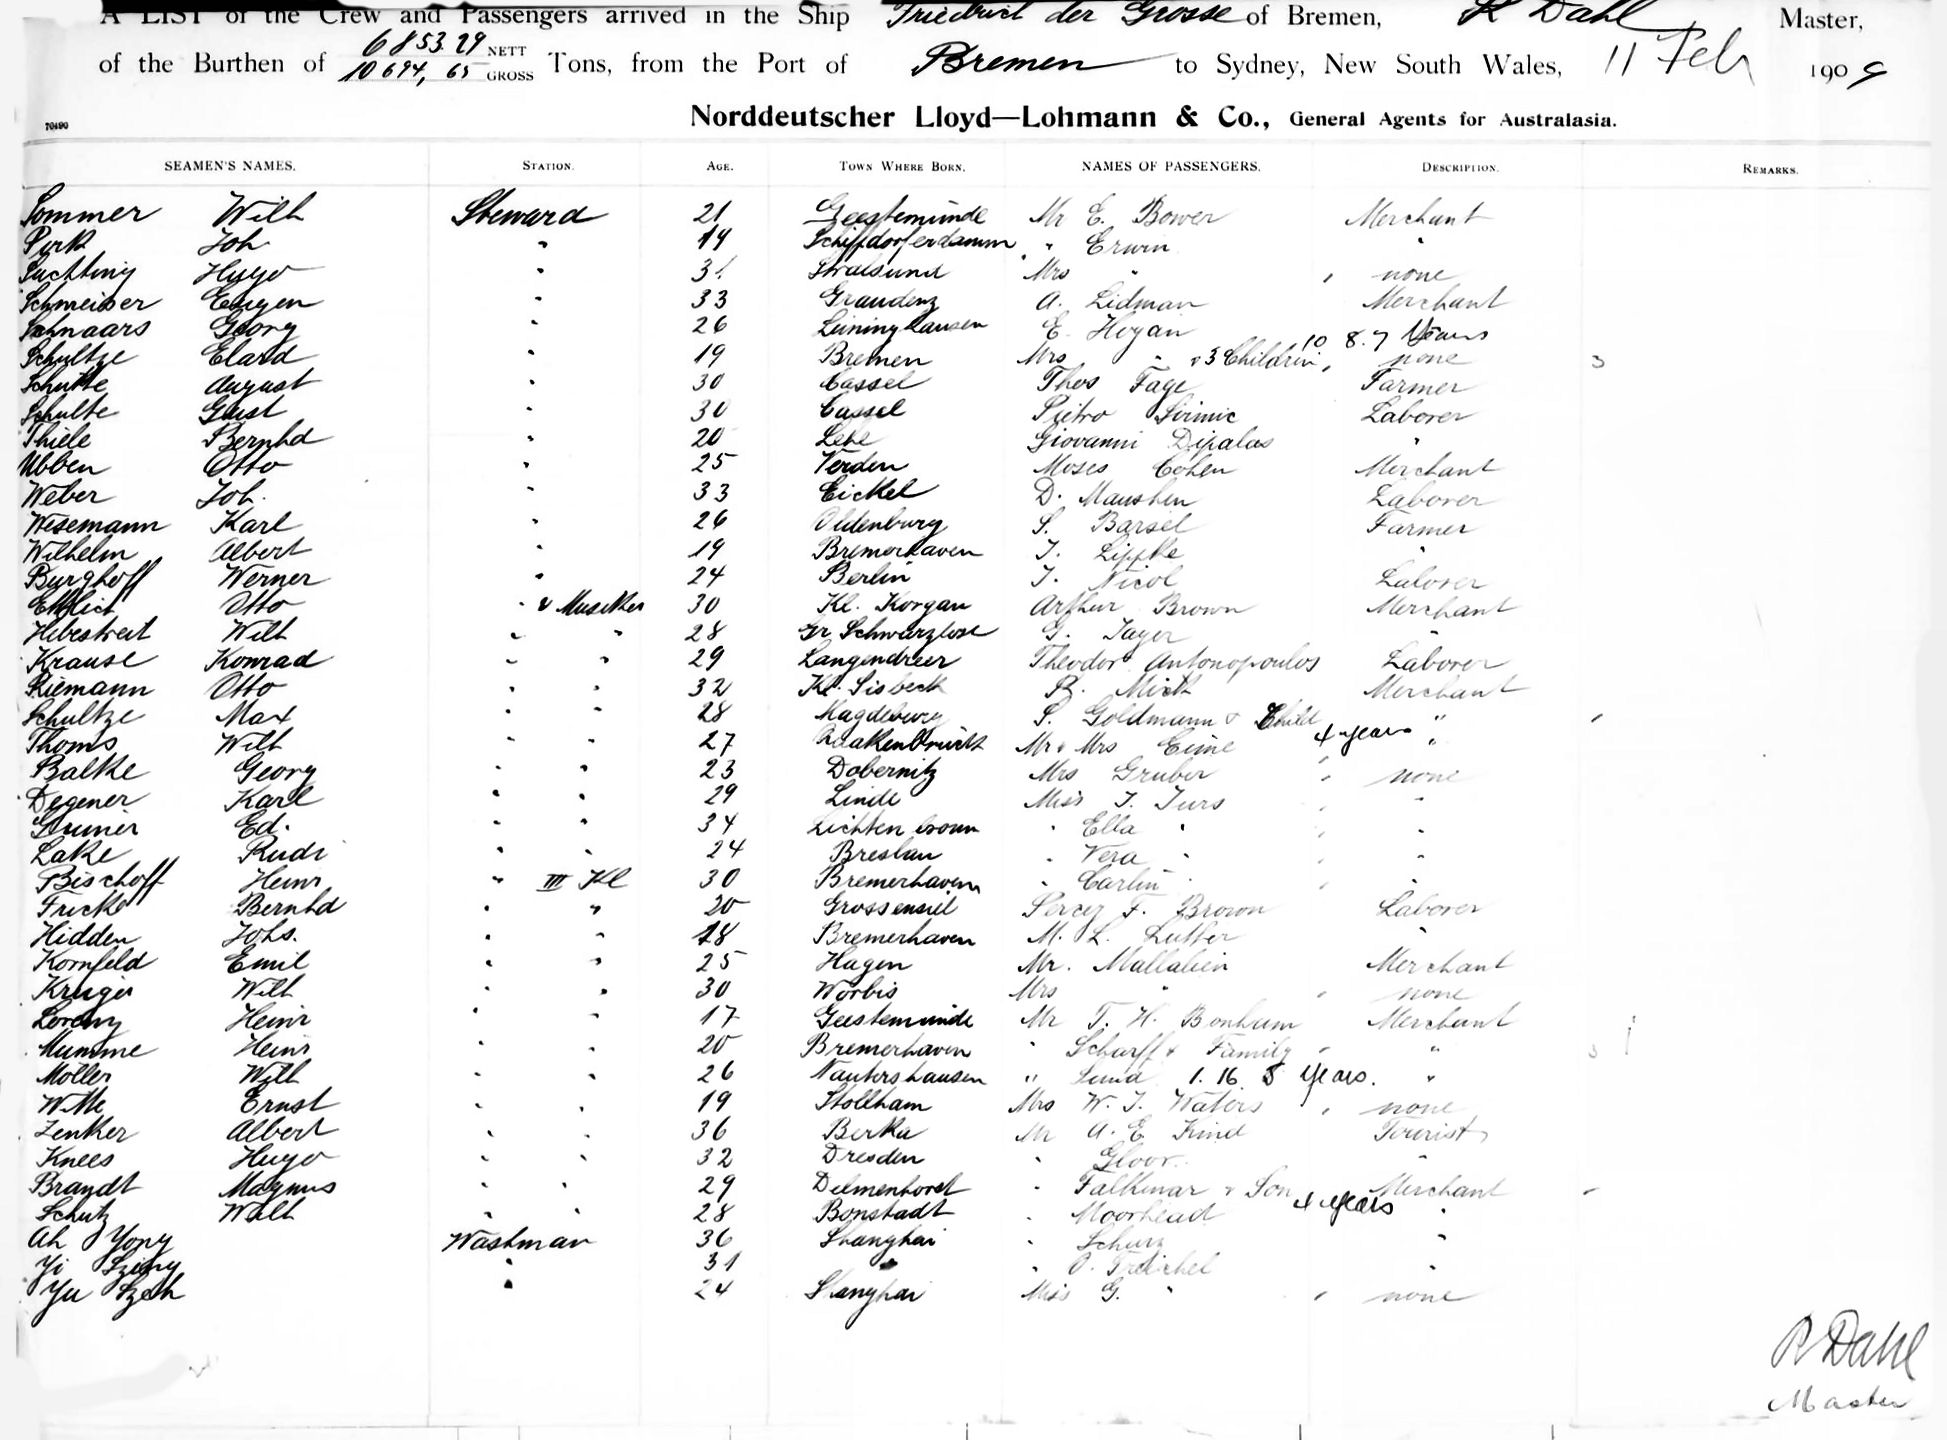 A LIST of the Crew and Passengers arrived in the Ship Friedrich der Grosse of Bremen, R Dahl Master,
of the Burthen of 6853.29 NETT 10694,65 GROSS Tons, from the Port of Bremen to Sydney, New South Wales, 11 Feb 1909
70490 Norddeutscher Lloyd—Lohmann & Co., General Agents for Australasia.
SEAMEN'S NAMES. STATION. AGE. TOWN WHERE BORN. NAMES OF PASSENGERS. DESCRIPTION. REMARKS.
Sommer Wilh Steward 21 Geestemünde Mr E. Bower Merchant
Joh " 19 Schiffdorferdamm " Erwin "
Hugo " Stralsund Mrs " none
Schmeisser Eugen " 33 Graudenz A. Lidman Merchant
Schnaars Georg " 26 E. Hogan
Schultze Elard " 19 Bremen Mrs " & 3 Children 10 8.7 Years none 3
Schutte August " 30 Cassel Thos Fage Farmer
Schulte Gust " 30 Cassel Pietro Laborer
Thiele Bernhd " 20 Lehe Giovanni "
Ubben Otto " 25 Verden Moses Cohen Merchant
Weber Joh. " 33 Eickel D. Laborer
Wesemann Karl " 26 Oldenburg S. Barsel Farmer
Wilhelm Albert " 19 Bremerhaven "
Burghoff Werner " 24 Berlin Nicol Laborer
Ehrlich Otto " & Musiker 30 Kl. Korgau Arthur Brown Merchant
Hebestreit Wilh " " 28 Gr Schwarzlose G. "
Krause Konrad " " 29 Langendreer Theodor Antonopoulos Laborer
Riemann Otto " " 32 Kl. Sisbeck Merchant
Schultze Max " " 28 Magdeburg S. Goldmann & Child 4 years "
Thoms Wilh " " 27 Quakenbrück Mr & Mrs "
Balke Georg " " 23 Dobernitz Mrs Gruber none
Degener Karl " " 29 Linde Miss "
Ed. " " 34 " Ella " "
Lake Rudi " " 24 Breslau " Vera " "
Bischoff Heinr " III Kl 30 Bremerhaven " " "
Fricke Bernhd " " 20 Grossensiel Percy F. Brown Laborer
Hidden Johs. " " 28 Bremerhaven M. L. "
Kornfeld Emil " " 25 Hagen Mr. Merchant
Krüger Wilh " " 30 Worbis Mrs " none
Lorenz Heinr " " 17 Geestemünde Mr T. H. Bonham Merchant
Mumme Heinr " " 20 Bremerhaven " Scharff & Family "
Möller Wilh " " 26 Nautershausen " 1. 16. 8 Years. "
Witte Ernst " " 19 Stollham Mrs W. J. Waters none
Zenker Albert " " 36 Berka Mr A. E. Kind Tourist
Knees Hugo " " 32 Dresden " Gloor "
Brandt Magnus " " 29 Delmenhorst " Falkinar & Son 4 years Merchant
Schutz Wilh " " 28 Bonstadt " Moorhead "
Ah Yong Washman 36 Shanghai " Schurz "
Yi " 31 " " "
Yu " 24 Shanghai Miss G. " none
R Dahl
Master